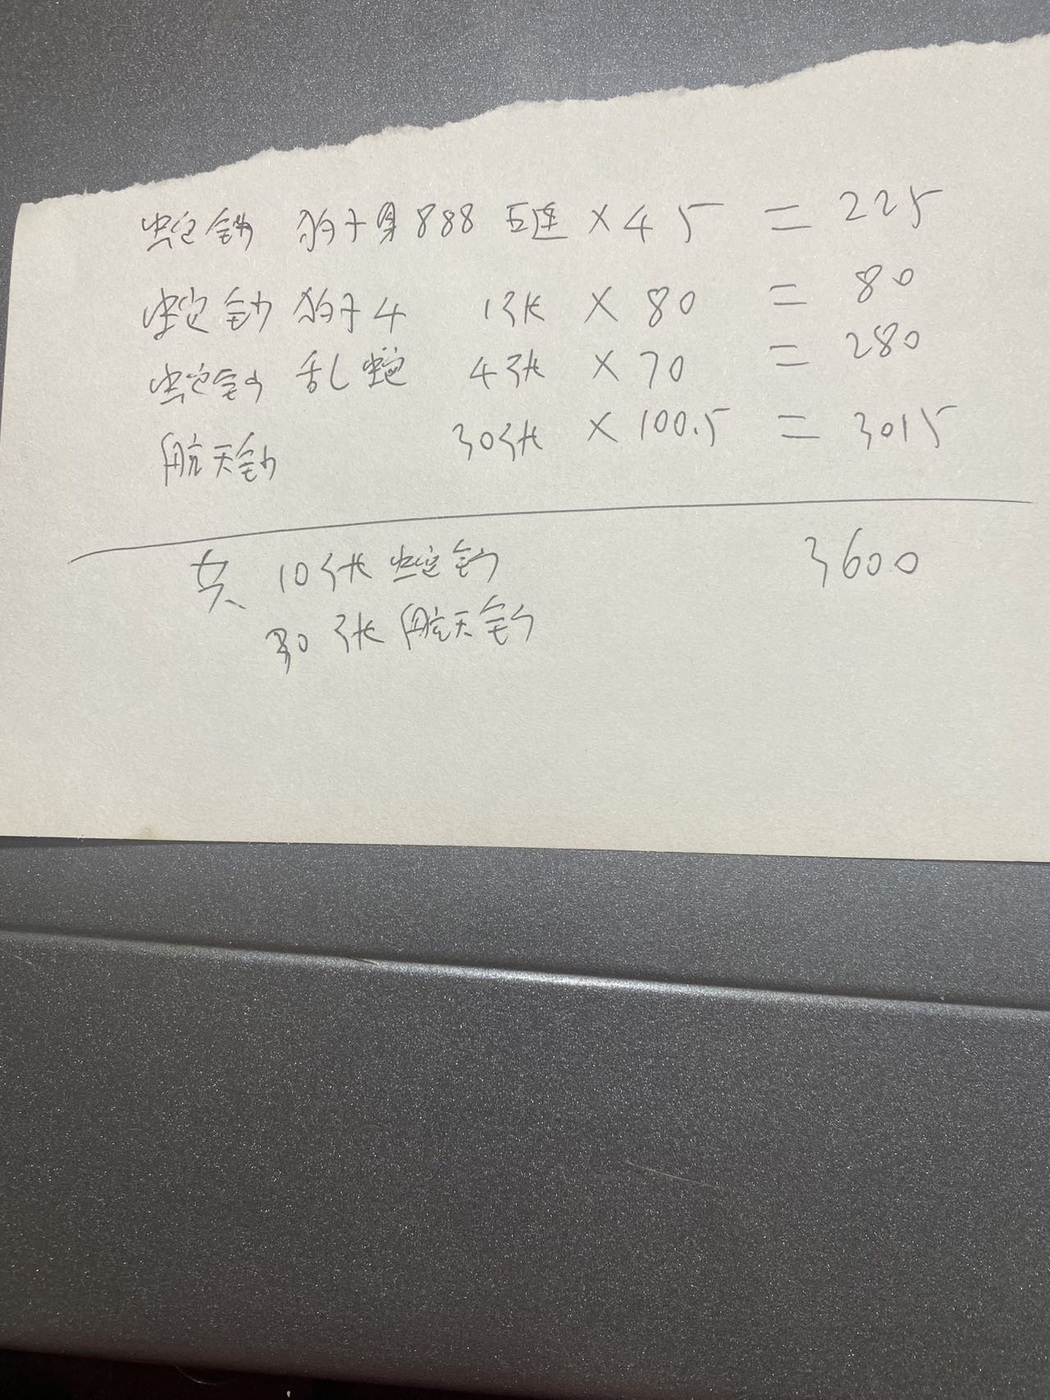 蛇钞 豹子号888 五连 × 45 = 225
蛇钞 豹子4 1张 × 80 = 80
蛇钞 乱蛇 4张 × 70 = 280
航天钞 30张 × 100.5 = 3015
共 10张 蛇钞 3600
30张 航天钞